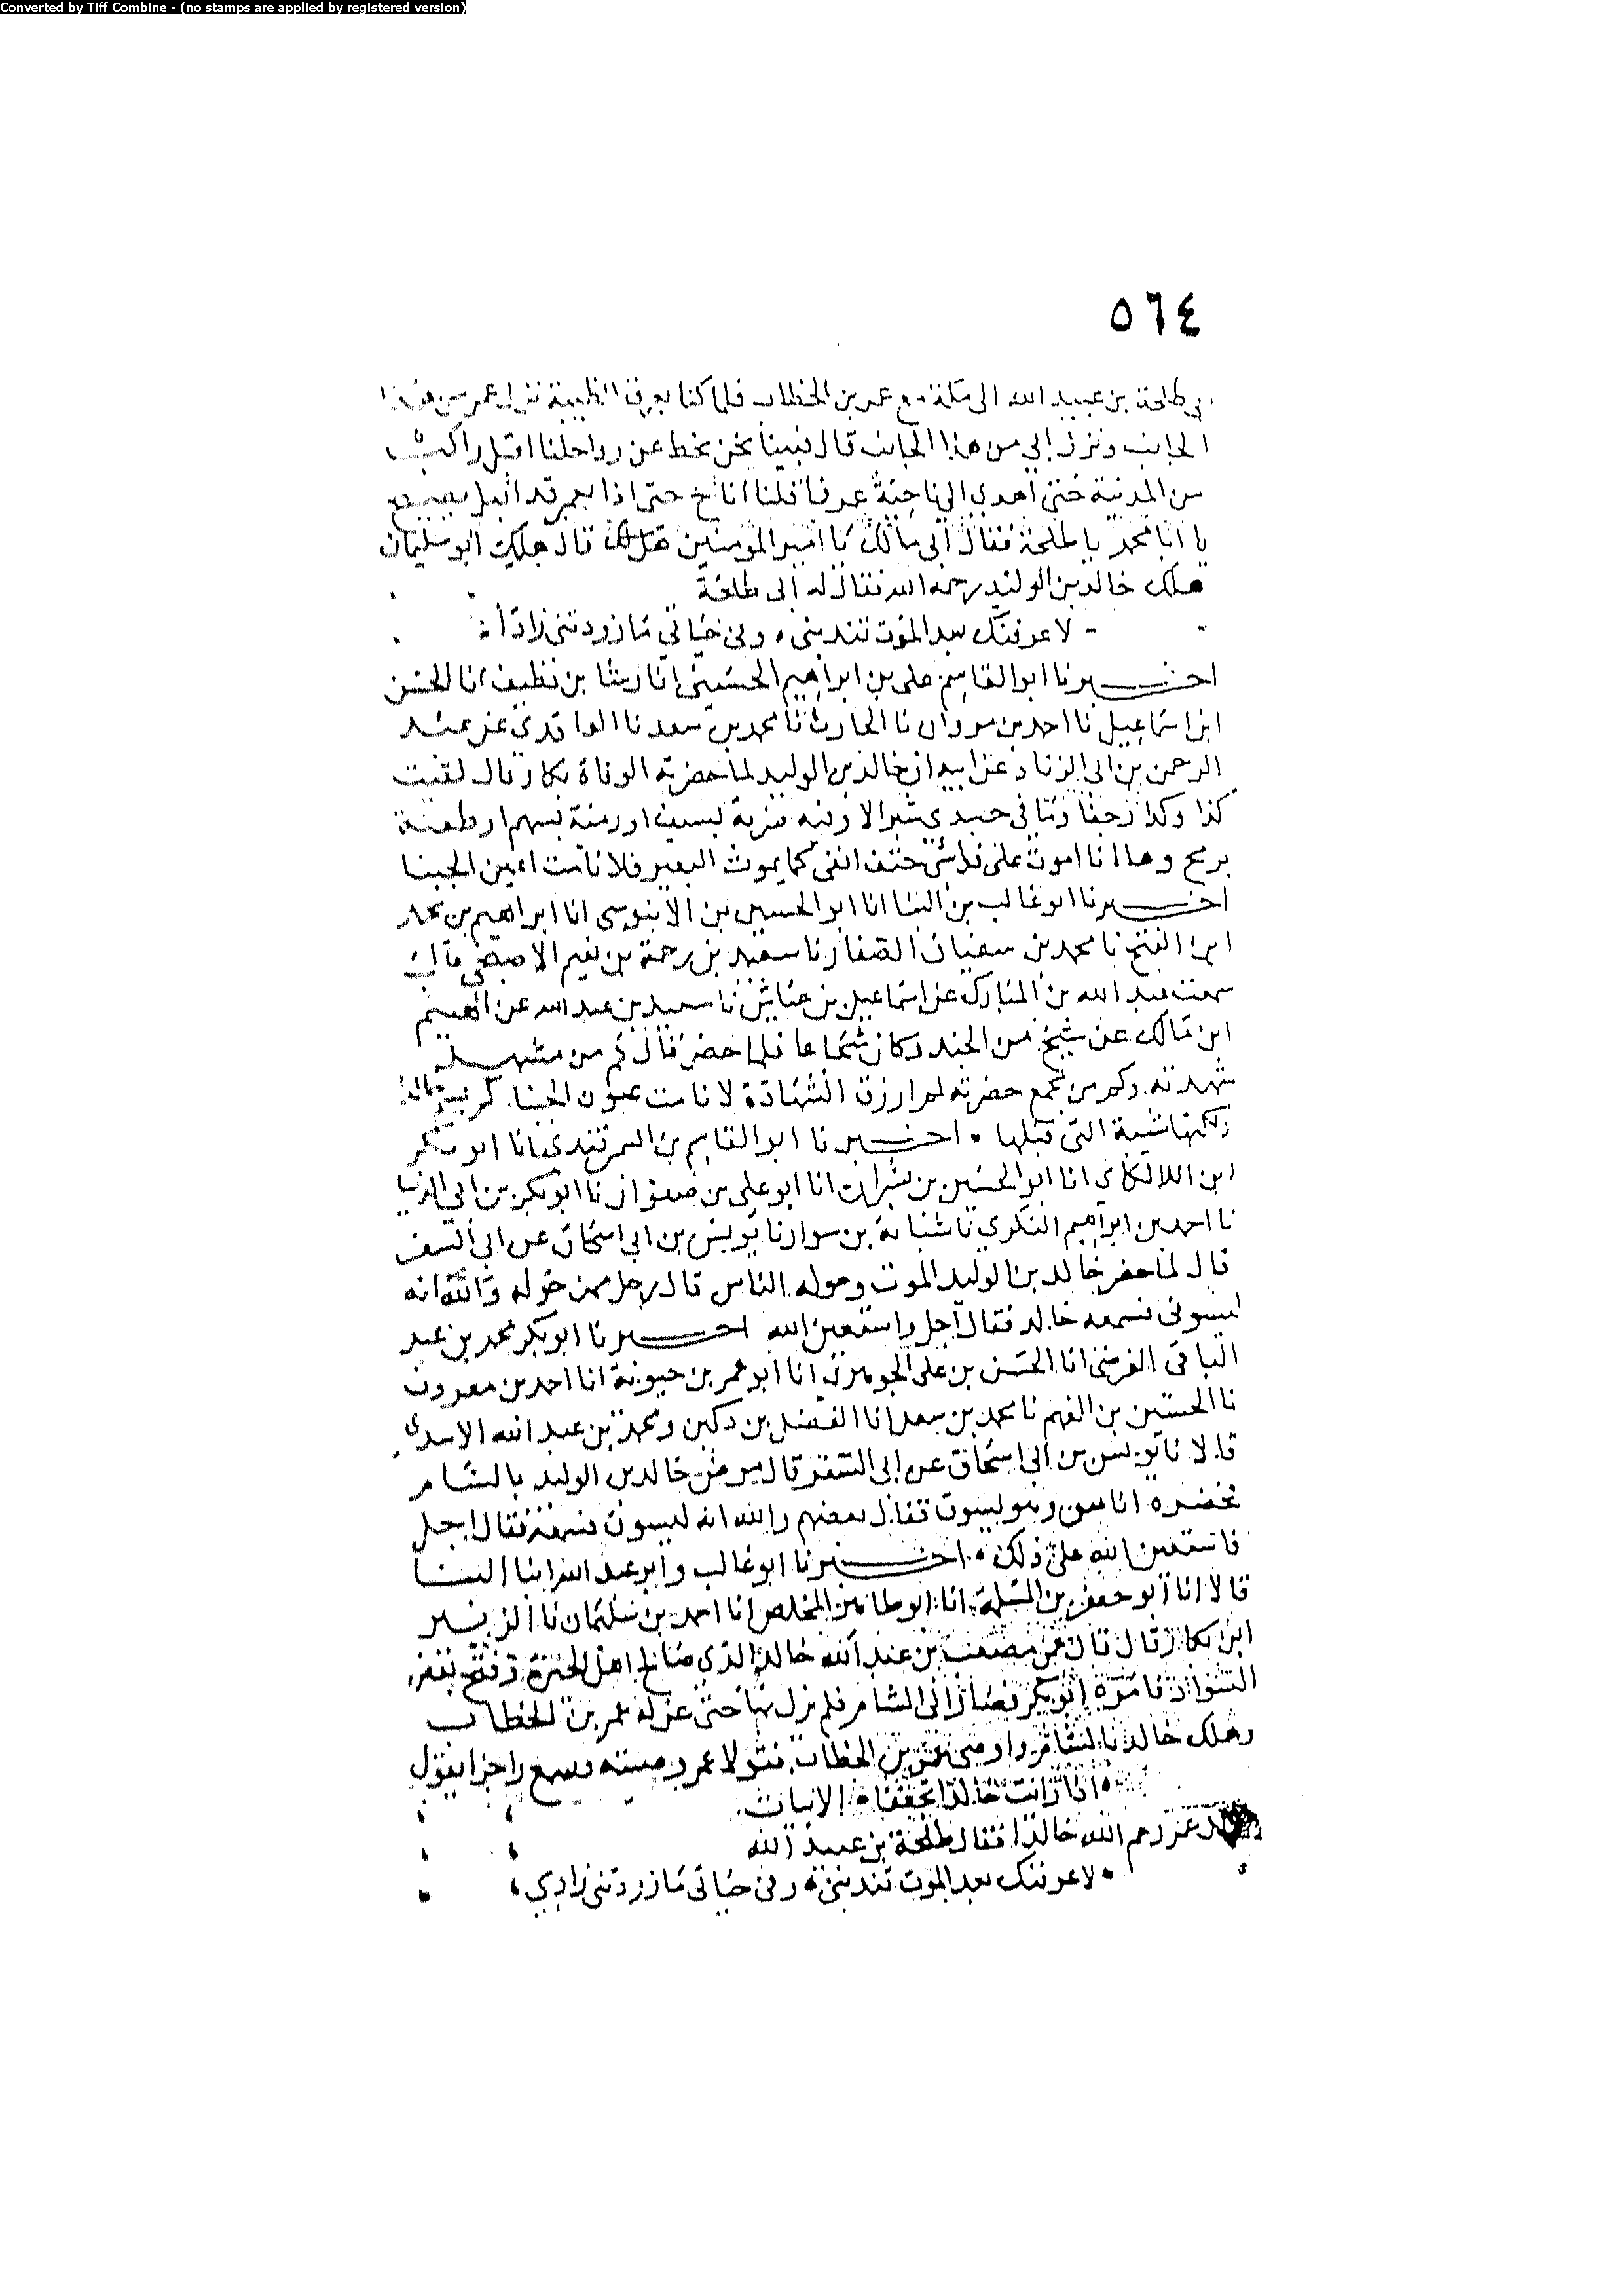 Converted by Tiff Combine - (no stamps are applied by registered version)
٥٦٤
ابي طلحة بن عبيد الله الى مكة مع عمر بن الخطاب فلما كنا بعرق الظبية نزل عمر من هذا
الجانب ونزل ابي من هذا الجانب قال فبينا نحن نحط عن رواحلنا اقبل راكب
من المدينة حتى اهدي الى ناحية عرفا فلنا اناخ حتى اذا بعمر قد اقبل يصيح
يا ابا محمد يا طلحة فقال ابي مالك يا امير المومنين قال هلك ابو سليمان
هلك خالد بن الوليد رحمه الله فقال له ابي طلحة
لا عرفنك بعد الموت تندبني، وفي حياتي ما زودتني زادا
اخبرنا ابو القاسم علي بن ابراهيم الحسيني انا رشا بن نظيف انا الحسن
ابن اسماعيل نا احمد بن مروان نا الحارث نا محمد بن سعد نا الواقدي عن عبد
الرحمن بن ابي الزناد عن ابيه ان خالد بن الوليد لما حضرته الوفاة بكا وقال لقيت
كذا وكذا زحفا وما في جسدي شبر الا وفيه ضربة بسيف او رمية بسهم او طعنة
برمح وها انا اموت على فراشي حتف انفي كما يموت البعير فلا نامت اعين الجبنا
اخبرنا ابو غالب بن البنا انا ابو الحسين بن الابنوسي انا ابراهيم بن محمد
ابن الفتح نا محمد بن سفيان الصفار نا سعيد بن رحمة بن نعيم الاصبحي قال
سمعت عبد الله بن المبارك عن اسماعيل بن عياش نا سعيد بن عبد الله عن الهيثم
ابن مالك عن شيخ من الجند وكان شجاعا فلما حضر قال كم من مشهد
شهدته وكم من مجمع حضرته لم ارزق الشهادة لا نامت عيون الجبنا
التي قبلها • اخبرنا ابو القاسم بن السمرقندي انا ابو بكر
ابن اللالكاي انا ابو الحسين بن بشران انا ابو علي بن صفوان نا ابو بكر بن ابي الدنيا
نا احمد بن ابراهيم النكري نا شبابة بن سوار نا يونس بن ابي اسحاق عن ابي السفر
قال لما حضر خالد بن الوليد الموت وحوله الناس قال رجل ممن حوله والله انه
ليسو فسمعه خالد فقال اجل واستعين الله اخبرنا ابو بكر محمد بن عبد
الباقي الفرضي انا الحسن بن علي الجوهري انا ابو عمر بن حيوية انا احمد بن معروف
نا الحسين بن الفهم نا محمد بن سعد انا الفضل بن دكين ومحمد بن عبد الله الاسدي
قالا نا يونس بن ابي اسحاق عن ابي السفر قال مرض خالد بن الوليد بالشام
فحضره اناس وهو يسوق فقال بعضهم والله انه ليسوق فسمعه فقال اجل
فاستعين الله على ذلك • اخبرنا ابو غالب وابو عبد الله ابنا البنا
قالا انا ابو جعفر بن المسلمة انا ابو طاهر المخلص انا احمد بن سليمان نا الزبير
ابن بكار قال قال عمي مصعب بن عبد الله خالد الذي صالح اهل الحيرة وفتح بعض
السواد فامره ابو بكر فصار الى الشام فلم يزل بها حتى عزله عمر بن الخطاب
وهلك خالد بالشام واوصى عمر بن الخطاب فتولا عمر وصيته وسمع راجزا يقول
• اذا رايت خالدا تخففا • الابيات
عمر رحم الله خالدا فقال طلحة بن عبيد الله
• لا عرفنك بعد الموت تندبني • وفي حياتي ما زودتني زادي •